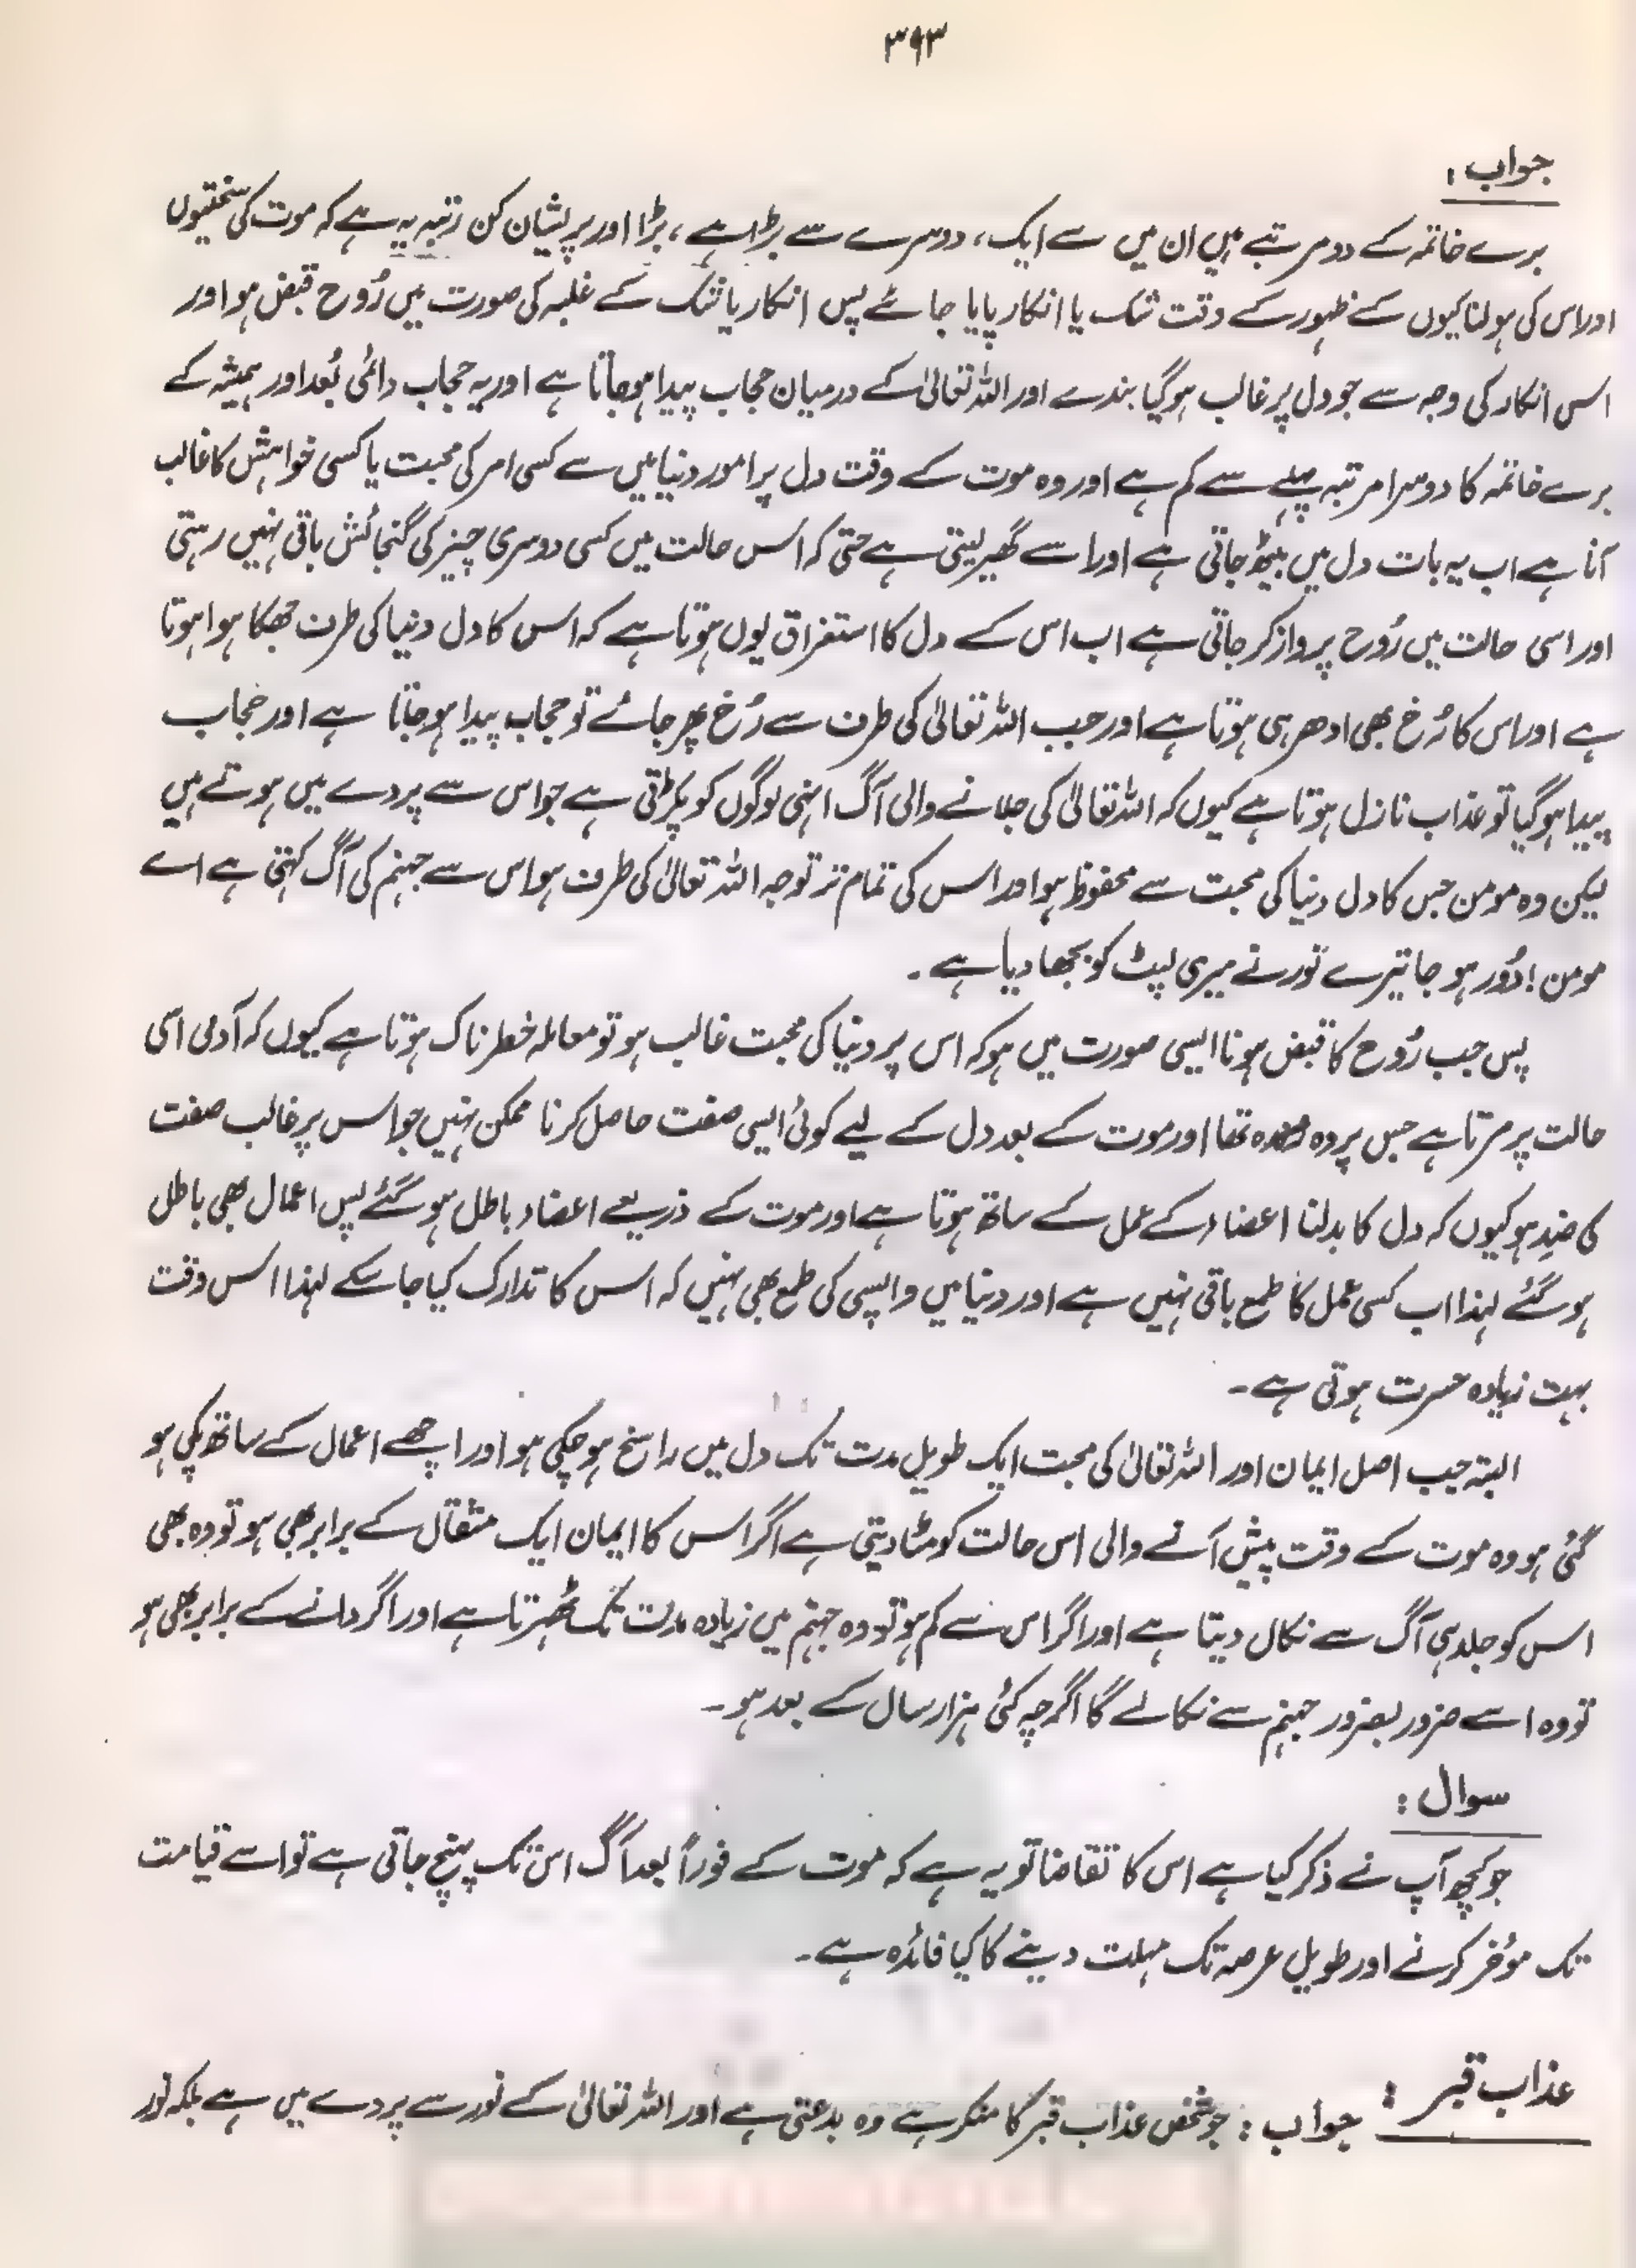 ۳۹۳
جواب :
برے خاتمہ کے دو مرتبے ہیں ان میں سے ایک، دوسرے سے بڑا ہے ، بڑا اور پریشان کن رتبہ یہ ہے کہ موت کی سختیوں
اور اس کی ہولناکیوں کے ظہور کے وقت شک یا انکار پایا جائے پس انکار یا شک کے غلبہ کی صورت میں رُوح قبض ہو اور
اس انکار کی وجہ سے جو دل پر غالب ہو گیا بندے اور اللہ تعالیٰ کے درمیان حجاب پیدا ہو جاتا ہے اور یہ حجاب دائمی بُعد اور ہمیشہ کے
برے خاتمہ کا دوسرا مرتبہ پہلے سے کم ہے اور وہ موت کے وقت دل پر امور دنیا میں سے کسی امر کی محبت یا کسی خواہش کا غالب
آنا ہے اب یہ بات دل میں بیٹھ جاتی ہے اور اسے گھیر لیتی ہے حتیٰ کہ اس حالت میں کسی دوسری چیز کی گنجائش باقی نہیں رہتی
اور اسی حالت میں رُوح پرواز کر جاتی ہے اب اس کے دل کا استغراق یوں ہوتا ہے کہ اس کا دل دنیا کی طرف جھکا ہوا ہوتا
ہے اور اس کا رُخ بھی ادھر ہی ہوتا ہے اور جب اللہ تعالیٰ کی طرف سے رُخ پھر جائے تو حجاب پیدا ہو جاتا ہے اور حجاب
پیدا ہو گیا تو عذاب نازل ہوتا ہے کیوں کہ اللہ تعالیٰ کی جلانے والی آگ انہی لوگوں کو پکڑتی ہے جو اس سے پردے میں ہوتے ہیں
لیکن وہ مومن جس کا دل دنیا کی محبت سے محفوظ ہو اور اس کی تمام تر توجہ اللہ تعالیٰ کی طرف ہو اس سے جہنم کی آگ کہتی ہے اے
مومن ! دُور ہو جا تیرے نور نے میری لپٹ کو بجھا دیا ہے ۔
پس جب رُوح کا قبض ہونا ایسی صورت میں ہو کہ اس پر دنیا کی محبت غالب ہو تو معاملہ خطرناک ہوتا ہے کیوں کہ آدمی اسی
حالت پر مرتا ہے جس پر وہ تھا اور موت کے بعد دل کے لیے کوئی ایسی صفت حاصل کرنا ممکن نہیں جو اس پر غالب صفت
کی ضد ہو کیوں کہ دل کا بدلنا اعضاء کے عمل کے ساتھ ہوتا ہے اور موت کے ذریعے اعضاء باطل ہو گئے پس اعمال بھی باطل
ہو گئے لہذا اب کسی عمل کا طمع باقی نہیں ہے اور دنیا میں واپسی کی طمع بھی نہیں کہ اس کا تدارک کیا جا سکے لہذا اس وقت
بہت زیادہ حسرت ہوتی ہے۔
البتہ جب اصل ایمان اور اللہ تعالیٰ کی محبت ایک طویل مدت تک دل میں راسخ ہو چکی ہو اور اچھے اعمال کے ساتھ پکی ہو
گئی ہو وہ موت کے وقت پیش آنے والی اس حالت کو مٹا دیتی ہے اگر اس کا ایمان ایک مثقال کے برابر بھی ہو تو وہ بھی
اس کو جلد ہی آگ سے نکال دیتا ہے اور اگر اس سے کم ہو تو وہ جہنم میں زیادہ مدت تک ٹھہرتا ہے اور اگر دانے کے برابر بھی ہو
تو وہ اسے ضرور بضرور جہنم سے نکالے گا اگرچہ کئی ہزار سال کے بعد ہو ۔
سوال :
جو کچھ آپ نے ذکر کیا ہے اس کا تقاضا تو یہ ہے کہ موت کے فوراً بعد آگ اس تک پہنچ جاتی ہے تو اسے قیامت
تک مؤخر کرنے اور طویل عرصہ تک مہلت دینے کا کیا فائدہ ہے۔
عذاب قبر : جواب : جو شخص عذاب قبر کا منکر ہے وہ بدعتی ہے اور اللہ تعالیٰ کے نور سے پردے میں ہے بلکہ نور